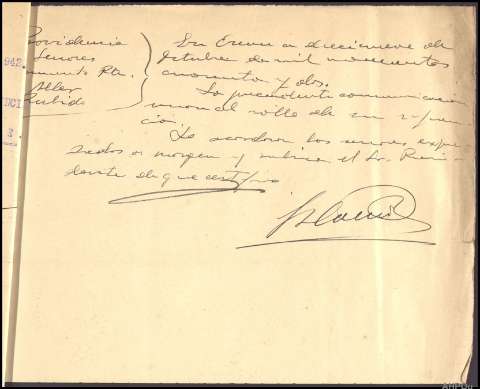 Providencia
Señores
Rte.
942.
En a diecinueve de
Octubre de mil novecientos
cuarenta y dos.
La precedente comunicación
unase al rollo de su referen-
cia.
Lo acordaron los señores expre-
sados al margen y rubrica el Sr. Presi-
dente de que certifico
AHPOu